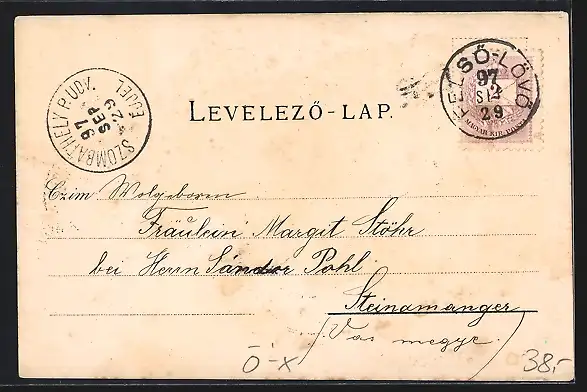 FELSŐ-LÖVŐ
97
SZ2
29
MAGYAR KIR. POSTA
SZOMBATHELY P.UDV.
97
SEP
29
ÉJJEL
LEVELEZŐ-LAP.
Czim Wolgeboren
Fräulein Margit Stöhr
bei Herrn Sándor Pohl
Steinamanger
(Vas megye.)
Ö-X
38.-